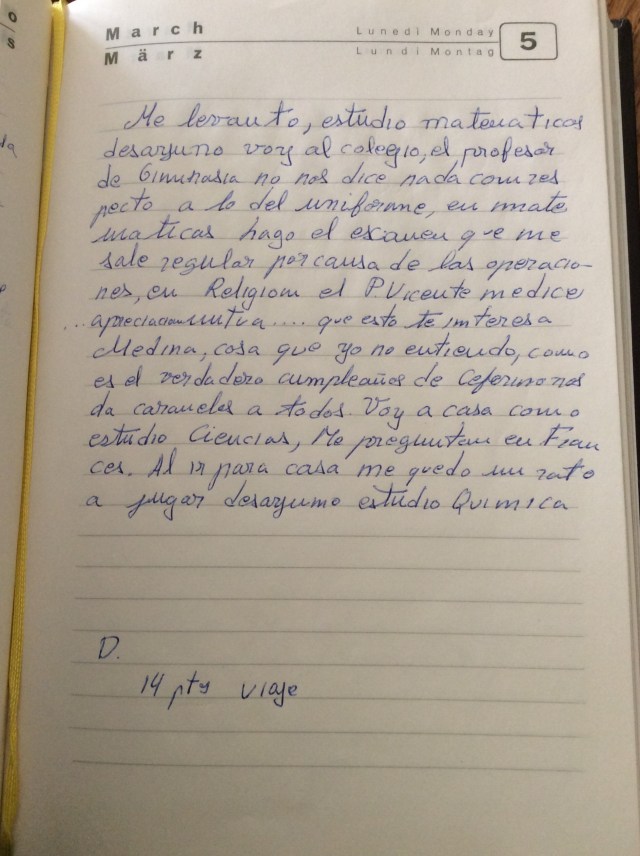 March
März
Lunedì Monday
Lundi Montag
5
Me levanto, estudio matematicas
desayuno voy al colegio, el profesor
de Gimnasia no nos dice nada con res
pecto a lo del uniforme, en mate
maticas hago el examen que me
sale regular por causa de las operacio-
nes, en Religion el P. Vicente me dice
... apreciacion mutua .... que esto te interesa
Medina, cosa que yo no entiendo, como
es el verdadero cumpleaños de Ceferino nos
da caramelos a todos. Voy a casa como
estudio Ciencias, Me preguntan en Fran
ces. Al ir para casa me quedo un rato
a jugar desayuno estudio Quimica
D.
14 pts viaje